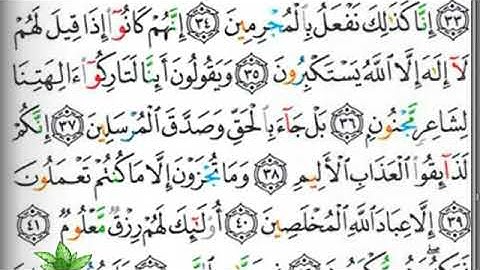 ٣٣ إِنَّا كَذَٰلِكَ نَفْعَلُ بِالْمُجْرِمِينَ ٣٤ إِنَّهُمْ كَانُوٓا۟ إِذَا قِيلَ لَهُمْ
لَآ إِلَٰهَ إِلَّا اللَّهُ يَسْتَكْبِرُونَ ٣٥ وَيَقُولُونَ أَئِنَّا لَتَارِكُوٓا۟ ءَالِهَتِنَا
لِشَاعِرٍ مَّجْنُونٍ ٣٦ بَلْ جَآءَ بِالْحَقِّ وَصَدَّقَ الْمُرْسَلِينَ ٣٧ إِنَّكُمْ
لَذَآئِقُوا۟ الْعَذَابِ الْأَلِيمِ ٣٨ وَمَا تُجْزَوْنَ إِلَّا مَا كُنتُمْ تَعْمَلُونَ
٣٩ إِلَّا عِبَادَ اللَّهِ الْمُخْلَصِينَ ٤٠ أُو۟لَٰٓئِكَ لَهُمْ رِزْقٌ مَّعْلُومٌ ٤١